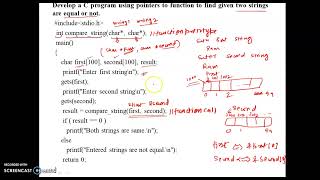 Develop a C program using pointers to function to find given two strings
are equal or not.
#include<stdio.h>
int compare_string(char*, char*); //function prototype
main()
{
char first[100], second[100], result;
printf("Enter first string\n");
gets(first);
printf("Enter second string\n");
gets(second);
result = compare_string(first, second); //function call
if ( result == 0 )
printf("Both strings are same.\n");
else
printf("Entered strings are not equal.\n");
return 0;
Enter first string
Ram
Enter second string
Ram
first
1000
0 1 99
second
0 1 99
first ⇔ &first[0]
Second ⇔ &Second[0]
RECORDED WITH
SCREENCAST MATIC